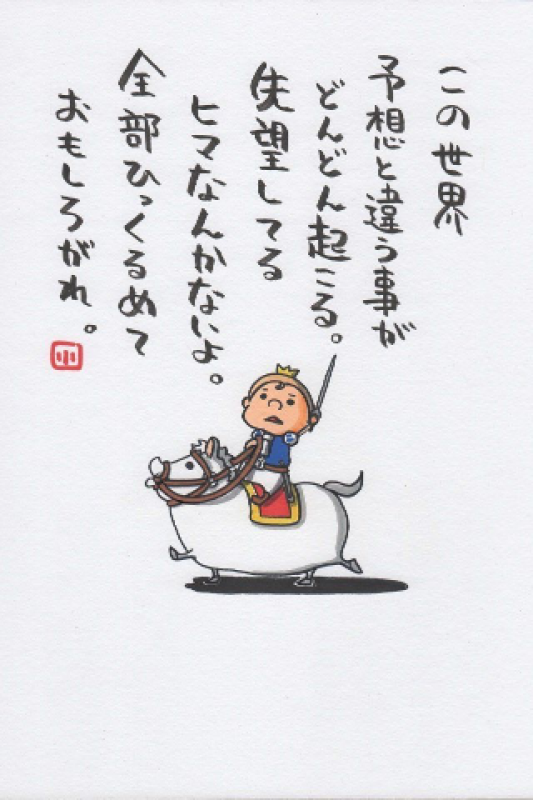 この世界
予想と違う事が
どんどん起こる。
失望してる
ヒマなんかないよ。
全部ひっくるめて
おもしろがれ。
小